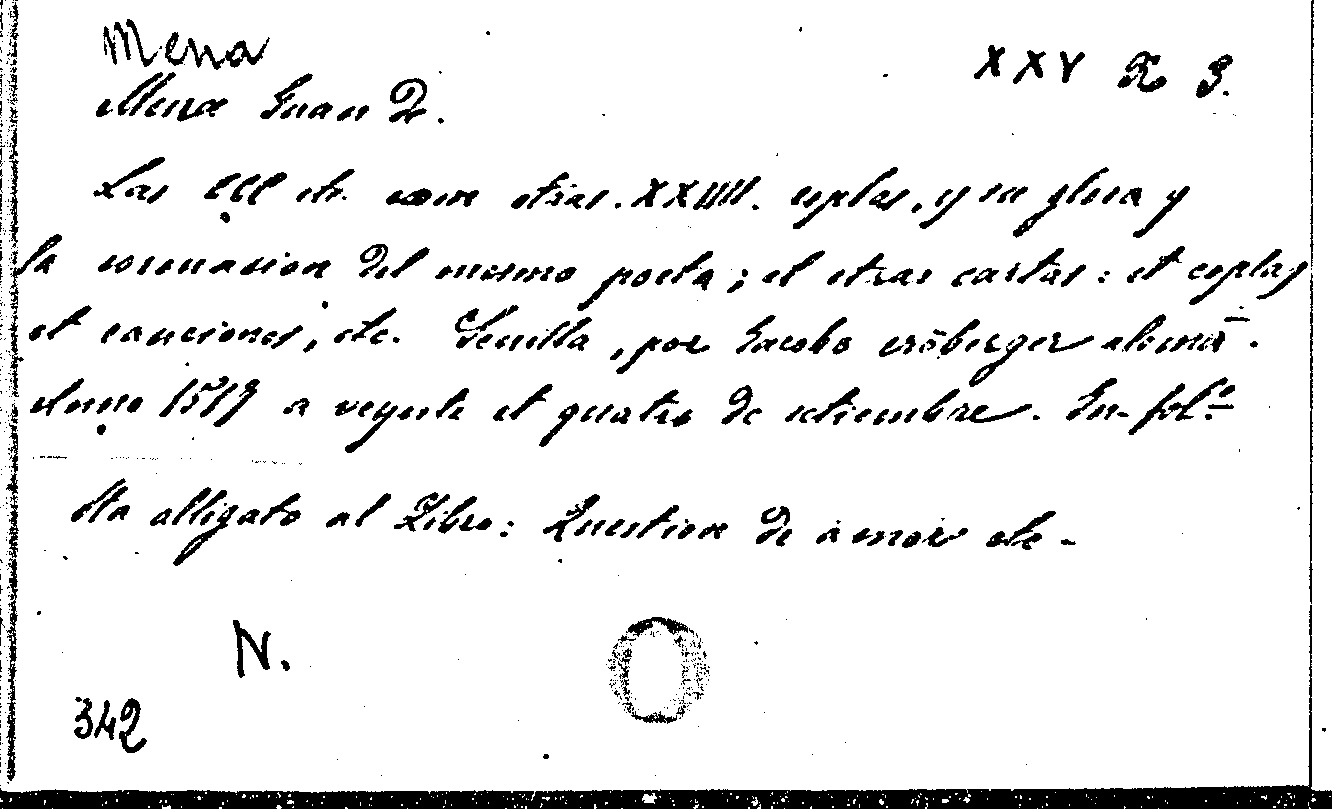 Mena
XXV K 3.
Mena Juan D.
Las CCC etc. con otras. XXIIII. coplas, y su glosa y
la coronacion del mesmo poeta; et otras cartas: et coplas
et canciones, etc. Sevilla, por Jacobo crōberger alemā.
Anno 1517 a veynte et quatro de setiembre. In-fol.º
Sta alligato al Libro: Question de amor etc-
N.
342